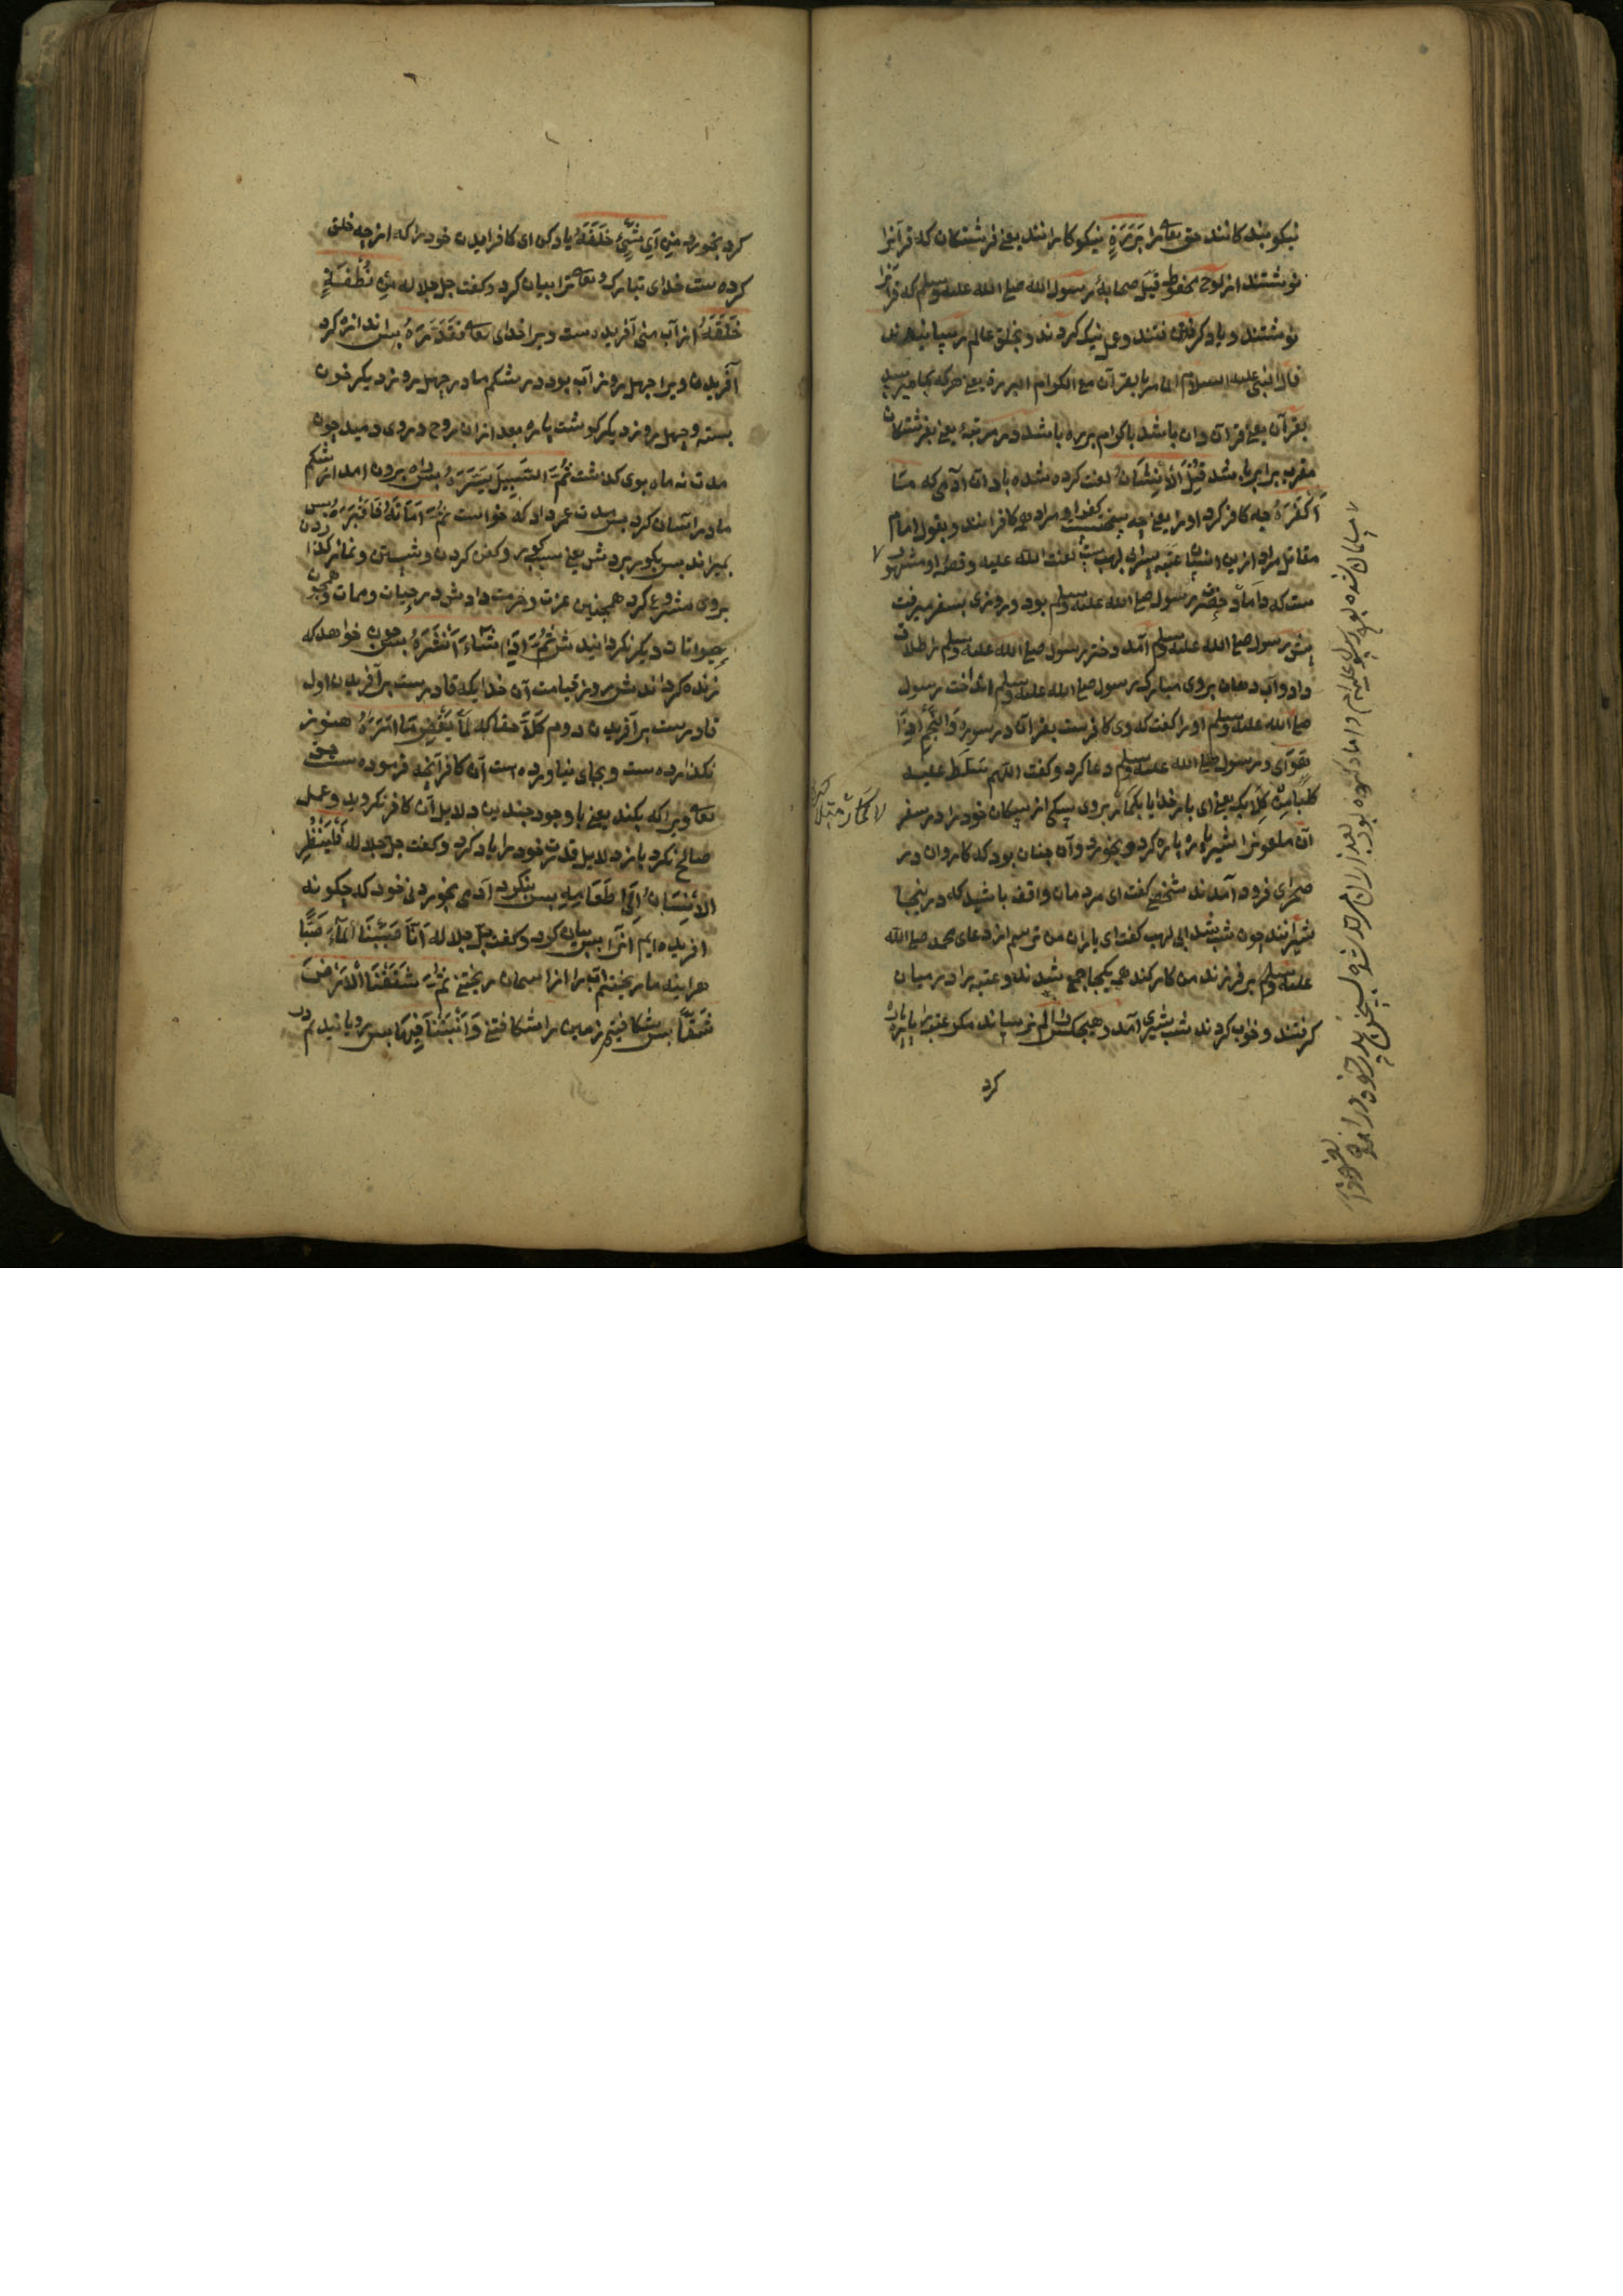 نیکو بندکانند حق تعالی را بَرَرَةٍ نیکوکارانند یعنی فرشتکان که قرآنرا
نوشتند از لوح محفوظ قیل صحابهٔ رسول الله صلی الله علیه وسلم که قرآنرا
نوشتند و یاد کرفتند و عمل نیک کردند و بخلق عالم رسانیدند
قال النبی علیه السلام الماهر بالقرآن مع الکرام البررة یعنی هر که
بقرآن یعنی قرآن دان باشد با کرام برره باشد در مرتبهٔ یعنی بفرشتکان
مقرب برابر باشد قُتِلَ الْاِنْسَانُ لعنت کرده شده باد آن آدمی که مَا
اَکْفَرَهُ چه کافر کرد اورا یعنی چه سخت کفر او مراد همه کافرانند و بقول امام
مقاتل مراد ازین انسان عتبه پسر ابی لهب است لعنت الله علیه و قصهٔ او مشهور
ست که داماد حضرت رسول صلی الله علیه وسلم بود و روزی بسفر میرفت
پیش رسول صلی الله علیه وسلم آمد و دختر رسول صلی الله علیه وسلم را طلاق
داد و آب دهان بروی مبارک رسول صلی الله علیه وسلم انداخت رسول
صلی الله علیه وسلم اورا کفت که وی کافرست بقرآن در سوره وَالنَّجْمِ اِذَا
هَوَی و رسول صلی الله علیه وسلم دعا کرد و کفت اللّهم سَلِّط علیه
کلبًا مِنْ کِلَابِکَ یعنی ای بار خدایا بکمار بروی سکی از سکان خود را در سفر
آن ملعونرا شیر پاره پاره کرد و بخورد و آن چنان بود که کاروان در
صحرای فرود آمدند شخصی کفت ای مردمان واقف باشید که درینجا
شیرانند چون شب شد ابی لهب کفت ای یاران من می ترسم از دعای محمد صلی الله
علیه وسلم بر فرزند من کار کند همه یکجا جمع شدند و عتبه را در میان
کرفتند و خواب کردند شب شیری آمد و هیچکس را الم نرسانید مکر عتبه را پاره پاره
کرد
کرد بخورد مِنْ اَیِّ شَیْءٍ خَلَقَهُ یاد کن ای کافر آفریدن خود را که از چه خلق
کرده ست خدای تبارک و تعالی ترا بیان کرد و کفت جل جلاله مِنْ نُطْفَةٍ
خَلَقَهُ از آب منی آفریده ست ویرا خدای تعالی فَقَدَّرَهُ پس اندازه کرد
آفریدن ویرا چهل روز آب بود در شکم مادر چهل روز دیکر خون
بسته و چهل روز دیکر کوشت پاره بعد ازان روح در وی دمید چون
مدت نه ماه بوی کذشت ثُمَّ السَّبِیلَ یَسَّرَهُ پس راه برون آمد از شکم
مادر آسان کرد پس مدت عمر داد که خواست ثُمَّ اَمَاتَهُ فَاَقْبَرَهُ پس
بمیراند پس بکور بردش یعنی بکور و کفن کردن و شستن و نماز کذاردن
بروی مشروع کرد همچنین عزت و حرمت دادش در حیات و ممات و چون
حیوانات دیکر نکردانیدش ثُمَّ اِذَا شَاءَ اَنْشَرَهُ پس چون خواهد که
زنده کرداندش روز قیامت آن خدایکه قادرست بر آفریدن اول
قادرست بر آفریدن دوم کَلَّا حقا که لَمَّا یَقْضِ مَا اَمَرَهُ هنوز
نکذارده ست و بجای نیاورده است آن کافر آنچه فرموده ست حق
تعالی ویرا که بکند یعنی با وجود چندین دلایل آن کافر نکروید و عمل
صالح نکرد باز دلایل قدرت خود را یاد کرد و کفت جل جلاله فَلْیَنْظُرِ
الْاِنْسَانُ اِلَی طَعَامِهِ پس بنکرد آدمی بخوردنی خود که چکونه
آفریده ایم آنرا پس بیان کرد و کفت جل جلاله اَنَّا صَبَبْنَا الْمَاءَ صَبًّا
هر اینه ما ریختیم آب را از آسمان ریختنی ثُمَّ شَقَقْنَا الْاَرْضَ
شَقًّا پس شکافتیم زمین را شکافتنی وَاَنْبَتْنَا فِیهَا پس رویانیدیم در